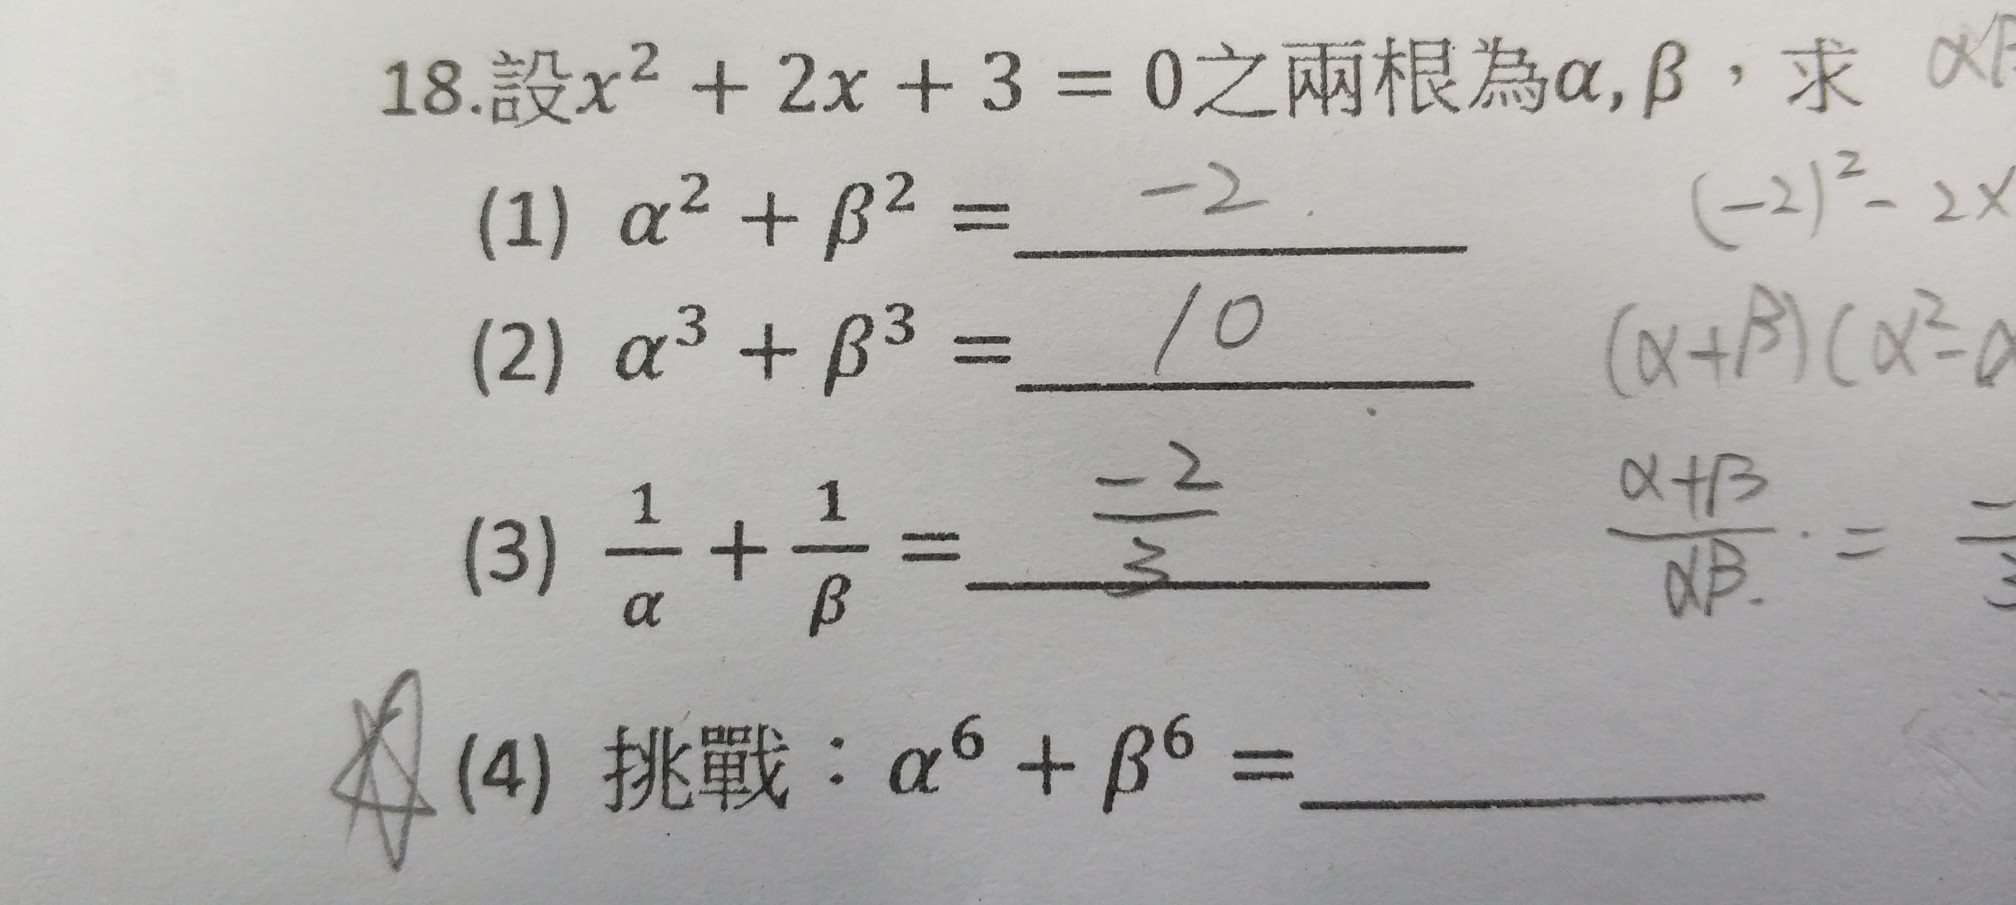 18.設x² + 2x + 3 = 0之兩根為α, β，求 αβ
(1) α² + β² = -2 (-2)² - 2×
(2) α³ + β³ = 10 (α+β)(α²-α
(3) 1/α + 1/β = -2/3 α+β/αβ = -/3
(4) 挑戰：α⁶ + β⁶ =